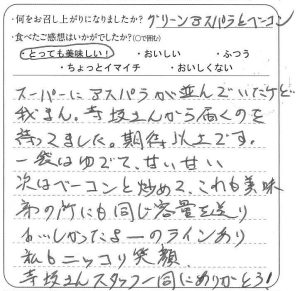 ・何をお召し上がりになりましたか？グリーンアスパラとベーコン
・食べたご感想はいかがでしたか？(○で囲む)
・とっても美味しい！ ・おいしい ・ふつう
・ちょっとイマイチ ・おいしくない
スーパーにアスパラが並んでいたけど
我まん。寺坂さんから届くのを
待ってました。期待以上です。
一袋はゆでて、甘い甘い
次はベーコンと炒めて、これも美味
の所にも同じ容量を送り
おいしかったよーのラインあり
私もニッコリ笑顔、
寺坂さんスタッフ一同にありがとう！